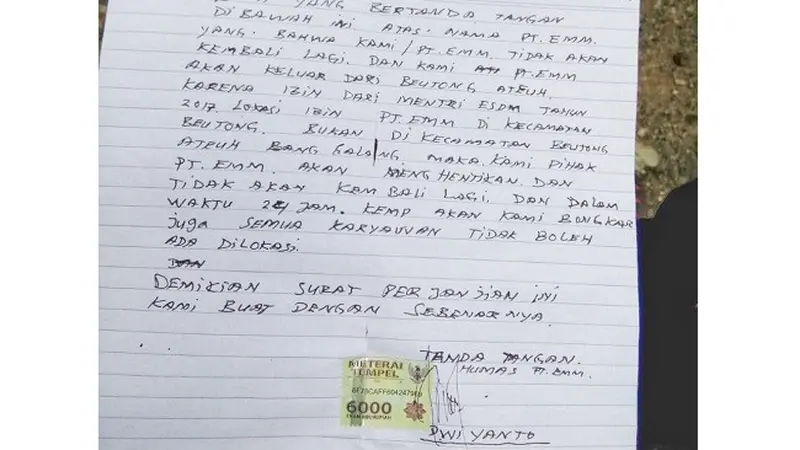 YANG BERTANDA TANGAN
DI BAWAH INI ATAS. NAMA PT. EMM.
YANG. BAHWA KAMI / PT. EMM. TIDAK AKAN
KEMBALI LAGI. DAN KAMI PT. EMM
AKAN KELUAR DARI BEUTONG ATEUH.
KARENA IZIN DARI MENTRI ESDM TAHUN
2017. LOKASI IZIN PT. EMM DI KECAMATAN
BEUTONG. BUKAN DI KECAMATAN BEUTONG
ATEUH BANG GALANG. MAKA. KAMI PIHAK
PT. EMM. AKAN MENGHENTIKAN. DAN
TIDAK AKAN KAMBALI LAGI. DAN DALAM
WAKTU 24 JAM. KEMP AKAN KAMI BONGKAR
juga SEMUA KARYAWAN TIDAK BOLEH
ADA DILOKASI.
DEMIKIAN SURAT PERJANJIAN INI
KAMI BUAT DENGAN SEBENARNYA.
TANDA TANGAN.
HUMAS PT. EMM.
METERAI
TEMPEL
6000
DWI YANTO